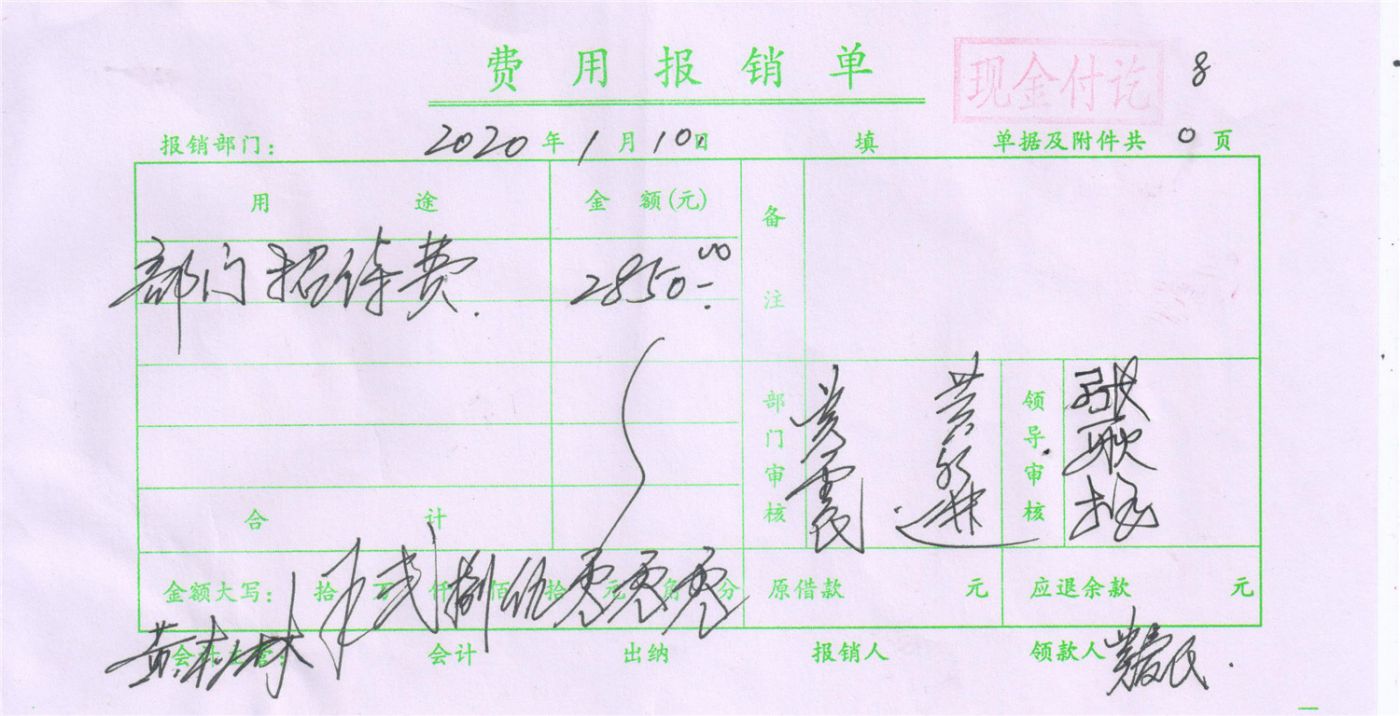 费用报销单
现金付讫
8
报销部门： 2020年1月10日 填 单据及附件共0页
用途 金额(元) 备注
部门招待费. 2850.00
部门审核 领导审核
合计
金额大写： 拾 万 贰仟 捌佰 伍拾 零元 零角 零分 原借款 元 应退余款 元
会计主管： 会计 出纳 报销人 领款人